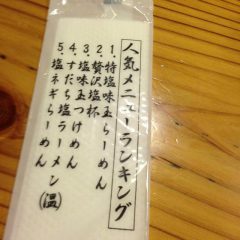 人気メニューランキング
1. 特塩味玉らーめん
2. 贅沢塩杯
3. 塩味玉つけめん
4. すだち塩ラーメン(温)
5. 塩ネギらーめん